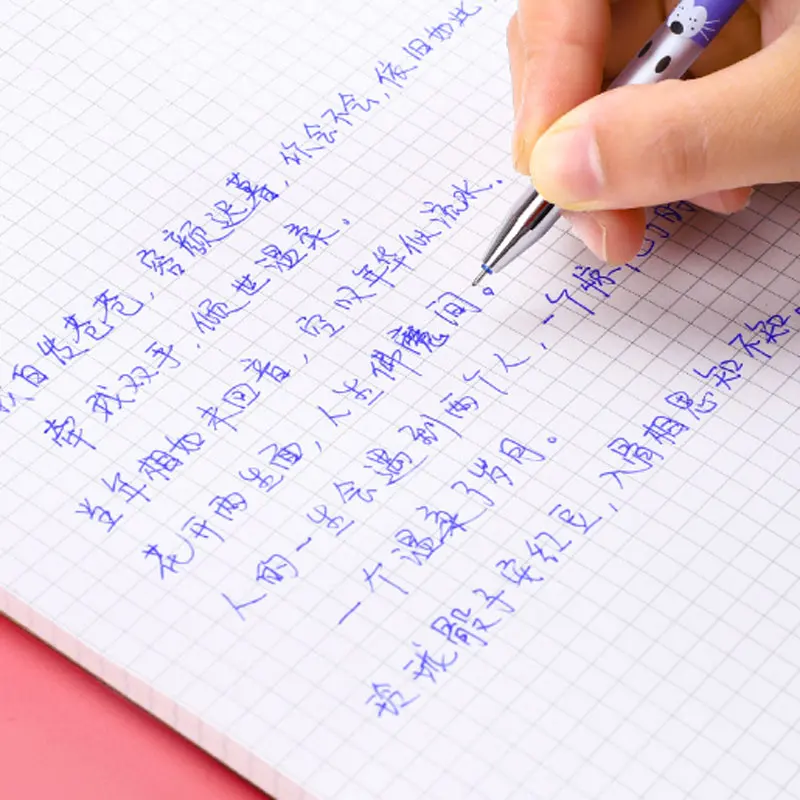 白发苍苍，容颜迟暮，你会不会，依旧如此
牵我双手，倾世温柔。
当年相如未回音，空叹年华似流水。
花开两生面，人生佛魔间。
人的一生会遇到两个人，一个惊
一个温柔了岁月。
玲珑骰子安红豆，入骨相思知不知